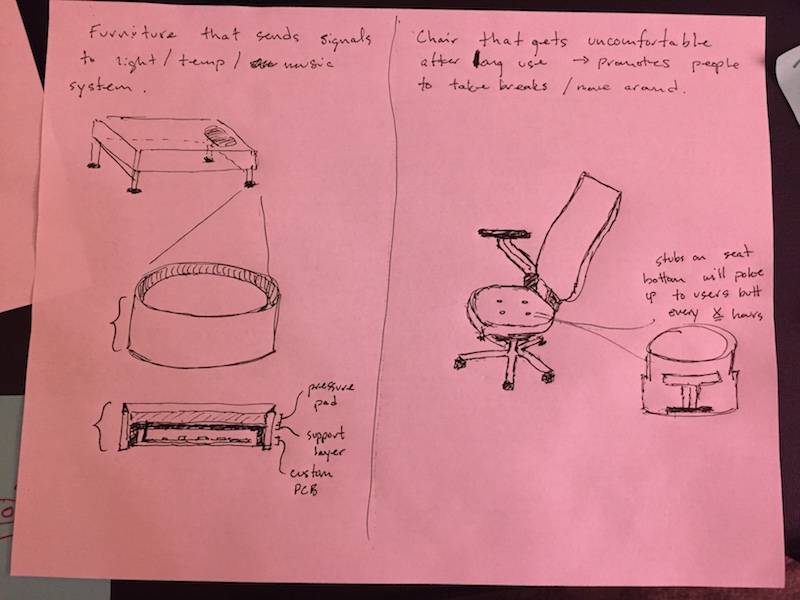 Furniture that sends signals
to light/temp/ music
system.
pressure
pad
support
layer
custom
PCB
Chair that gets uncomfortable
after long use → promotes people
to take breaks / move around.
stubs on seat
bottom will poke
up to users butt
every X hours